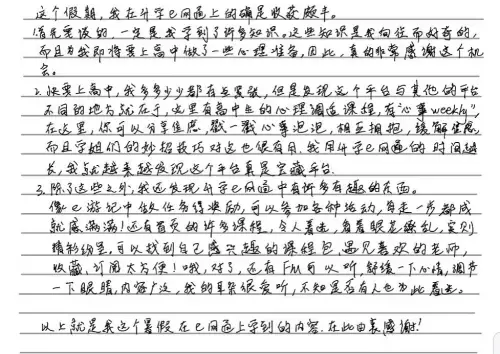 这个假期,我在升学e网通上的确是收获颇丰。
1.首先要谈的,一定是我学到了许多知识。这些知识是我向往而好奇的,
而且为我即将要上高中做了一些心理准备,因此,真的非常感谢这个机
会。
2.快要上高中,我多多少少都有点紧张,但是发现这个平台与其他的平台
不同的地方就在于,这里有高中生的心理调适课程,有“心事weekly”,
在这里,你可以分享焦虑,戳一戳心事泡泡,相互拥抱,缓解焦虑,
而且学姐们的妙招技巧对这也很有用。我用升学e网通的时间越
长,我就越来越发现这个平台真是宝藏平台.
3.除了这些之外,我还发现升学e网通中有许多有趣的东西。
像e游记中做任务得奖励,可以参加各种活动,每走一步都成
就感满满!还有首页的许多课程,令人看着,看着眼花缭乱,实则
精彩纷呈,可以找到自己感兴趣的课程包,遇见喜欢的老师,
收藏,订阅太方便!哦,对了,还有FM可以听,舒缓一下心情,调节
一下眼睛,内容广泛,我的耳朵很爱听,不知是否有人也为此着迷。
以上就是我这个暑假在e网通上学到的内容.在此由衷感谢!